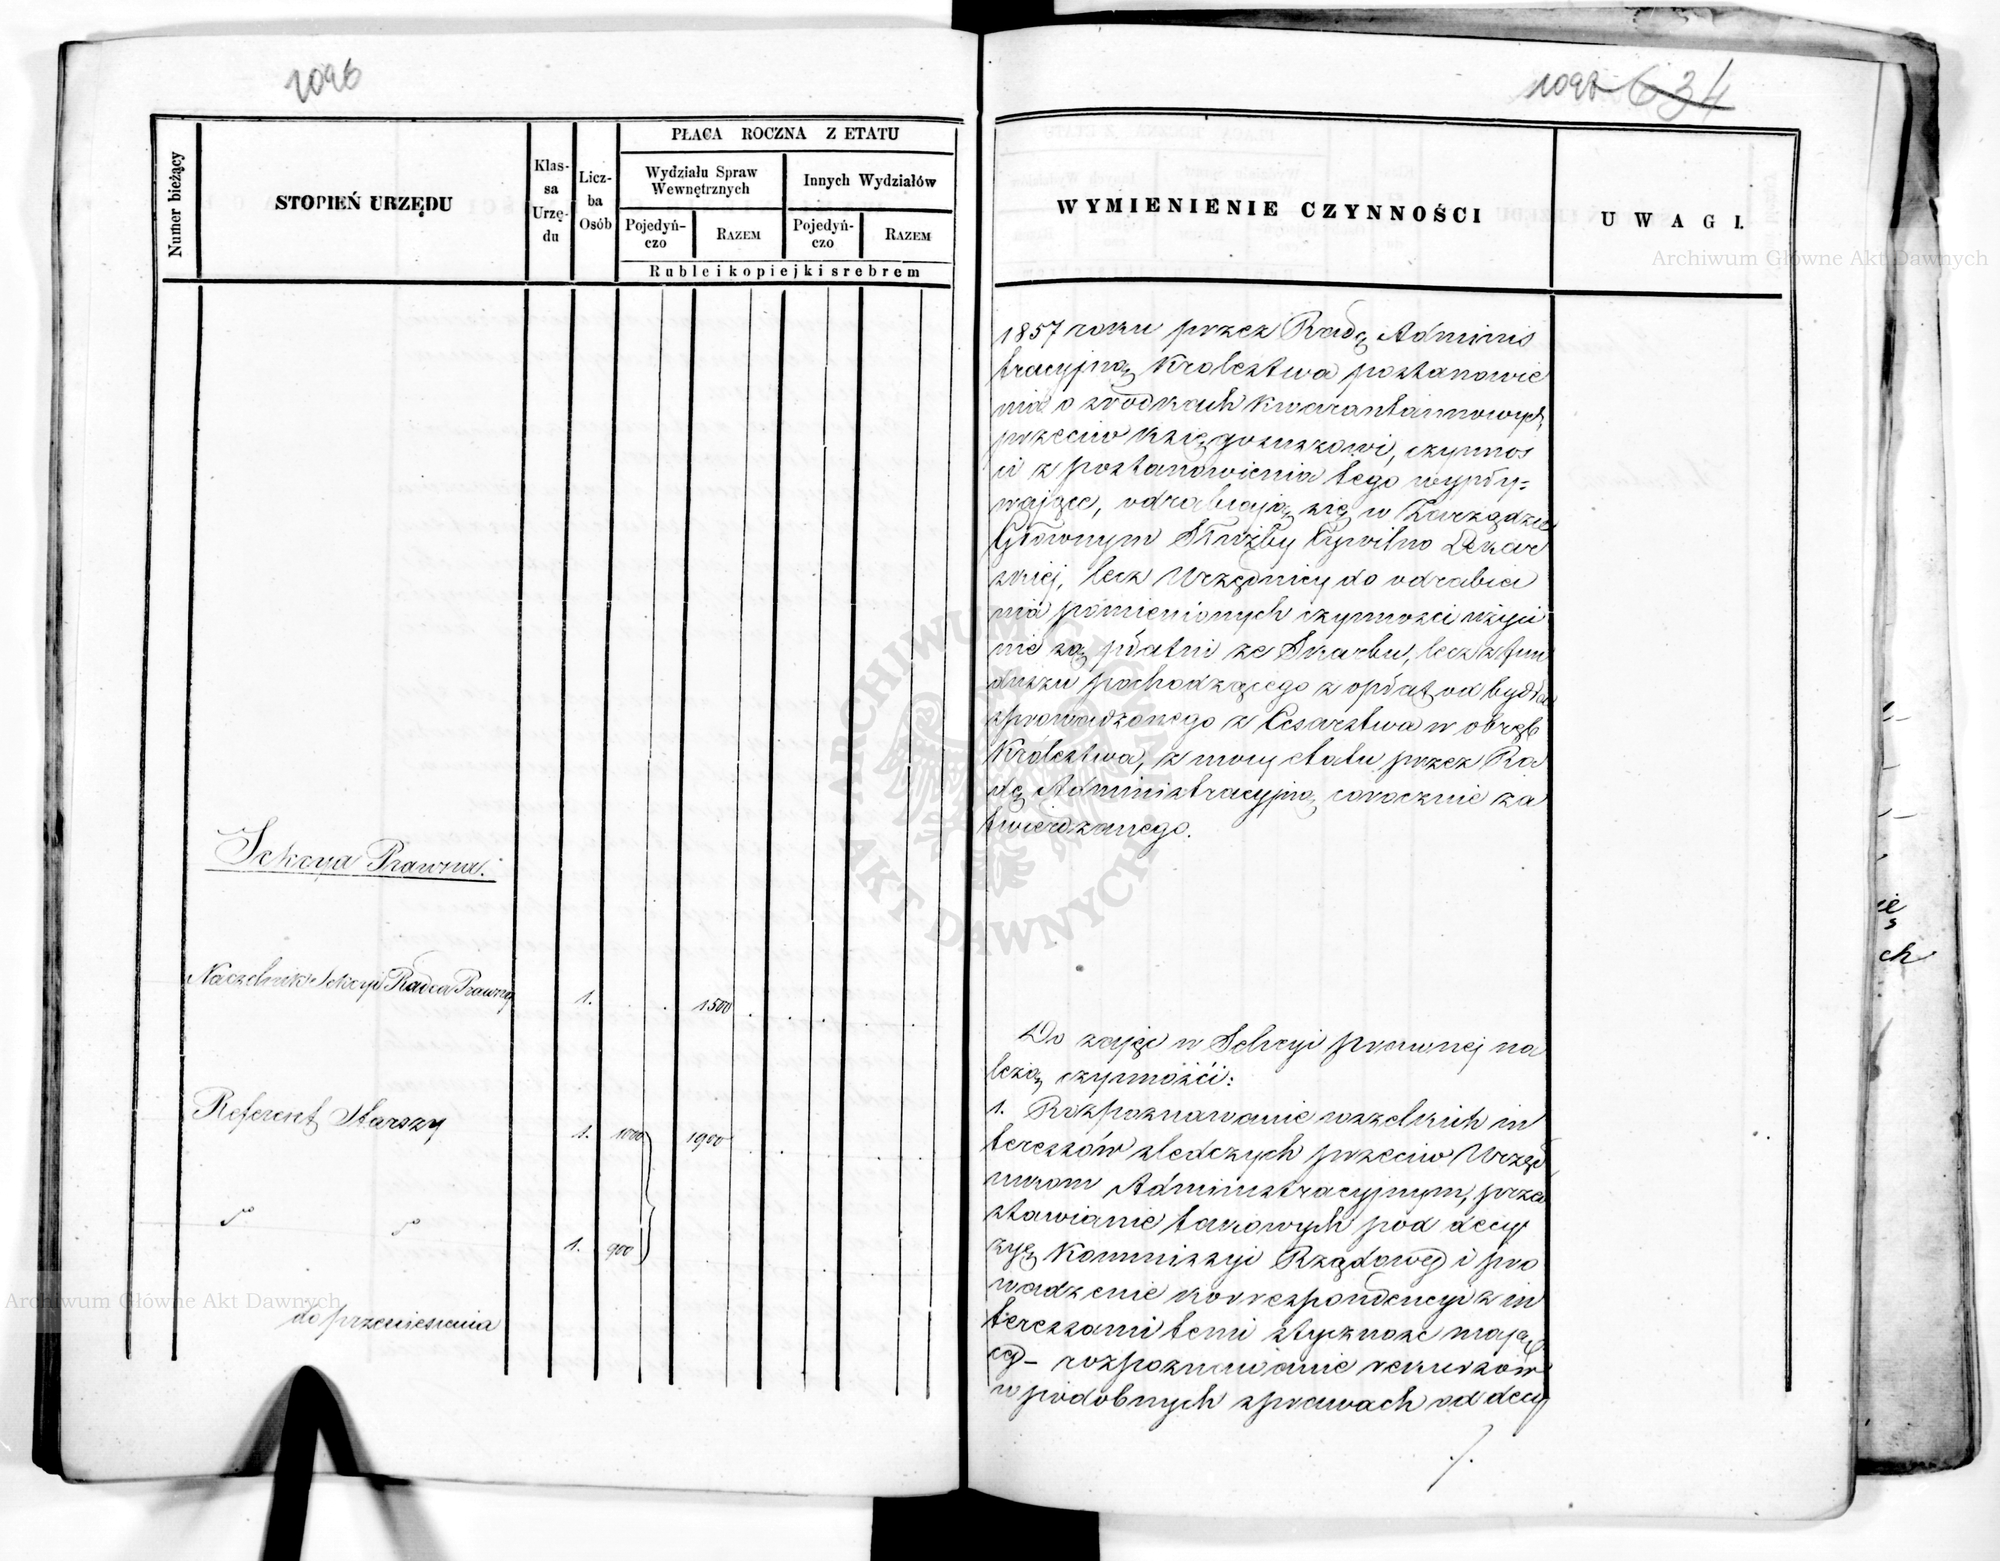 1096
Numer bieżący
STOPIEŃ URZĘDU
Klas-
sa
Urzę-
du
Licz-
ba
Osób
PŁACA ROCZNA Z ETATU
Wydziału Spraw
Wewnętrznych
Innych Wydziałów
Pojedyń-
czo
RAZEM
Pojedyń-
czo
RAZEM
Rubleikopiejkisrebrem
Sekcya Prawna.
Naczelnik Sekcyi Radca Prawny 1. 1500
Referent Starszy 1. 1000 1900
1. 900
do przeniesienia
1097 634
WYMIENIENIE CZYNNOŚCI
UWAGI.
1857 roku przez Radę Adminis
tracyjną Krolestwa postanowie
nia o srodkach kwarantannowych
przeciw księgosuszowi, czynnos
ci z postanowienia tego wypły-
wające, odrabiają się w Zarządzie
Głównym Służby Cywilno Lekar
skiej, lecz Urzędnicy do odrabia
nia pomienionych czynnosci użyci
nie są płatni ze Skarbu, lecz z fun
duszu pochodzącego z opłat od bydła
sprowadzanego z Cesarstwa w obręb
Królestwa, z mocy etatu przez Ra
dę Administracyjną corocznie za
twierdzanego.
Do zajęć w Sekcyi prawnej na
leżą czynności:
1. Rozpoznawanie wszelkich in
teressów sledczych przeciw Urzęd
nikom Administracyjnym, przed
stawianie takowych pod decy
zyę Kommissyi Rządowej i pro
wadzenie korrespondencyi z in
teressami temi styczność mają
cej – rozpoznawanie rekursów
w podobnych sprawach od decy
./.
ch
Archiwum Główne Akt Dawnych
Archiwum Główne Akt Dawnych
ARCHIWUM GŁÓWNE AKT DAWNYCH